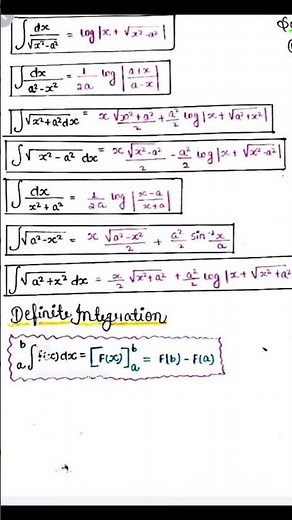 ∫ dx/√(x²-a²) = log |x + √(x²-a²)|
∫ dx/(a²-x²) = 1/2a log |(a+x)/(a-x)|
∫√(x²+a²) dx = x √(x²+a²)/2 + a²/2 log |x + √(a²+x²)|
∫ √(x²-a²) dx = x √(x²-a²)/2 - a²/2 log |x + √(x²-a²)|
∫ dx/(x²+a²) = 1/2a log |(x-a)/(x+a)|
∫√(a²-x²) = x √(a²-x²)/2 + a²/2 sin⁻¹ x/a
∫ √(a²+x²) dx = x/2 √(x²+a²) + a²/2 log |x + √(x²+a²)
Definite Integration
a∫b f(x) dx = [F(x)]ba = F(b) - F(a)